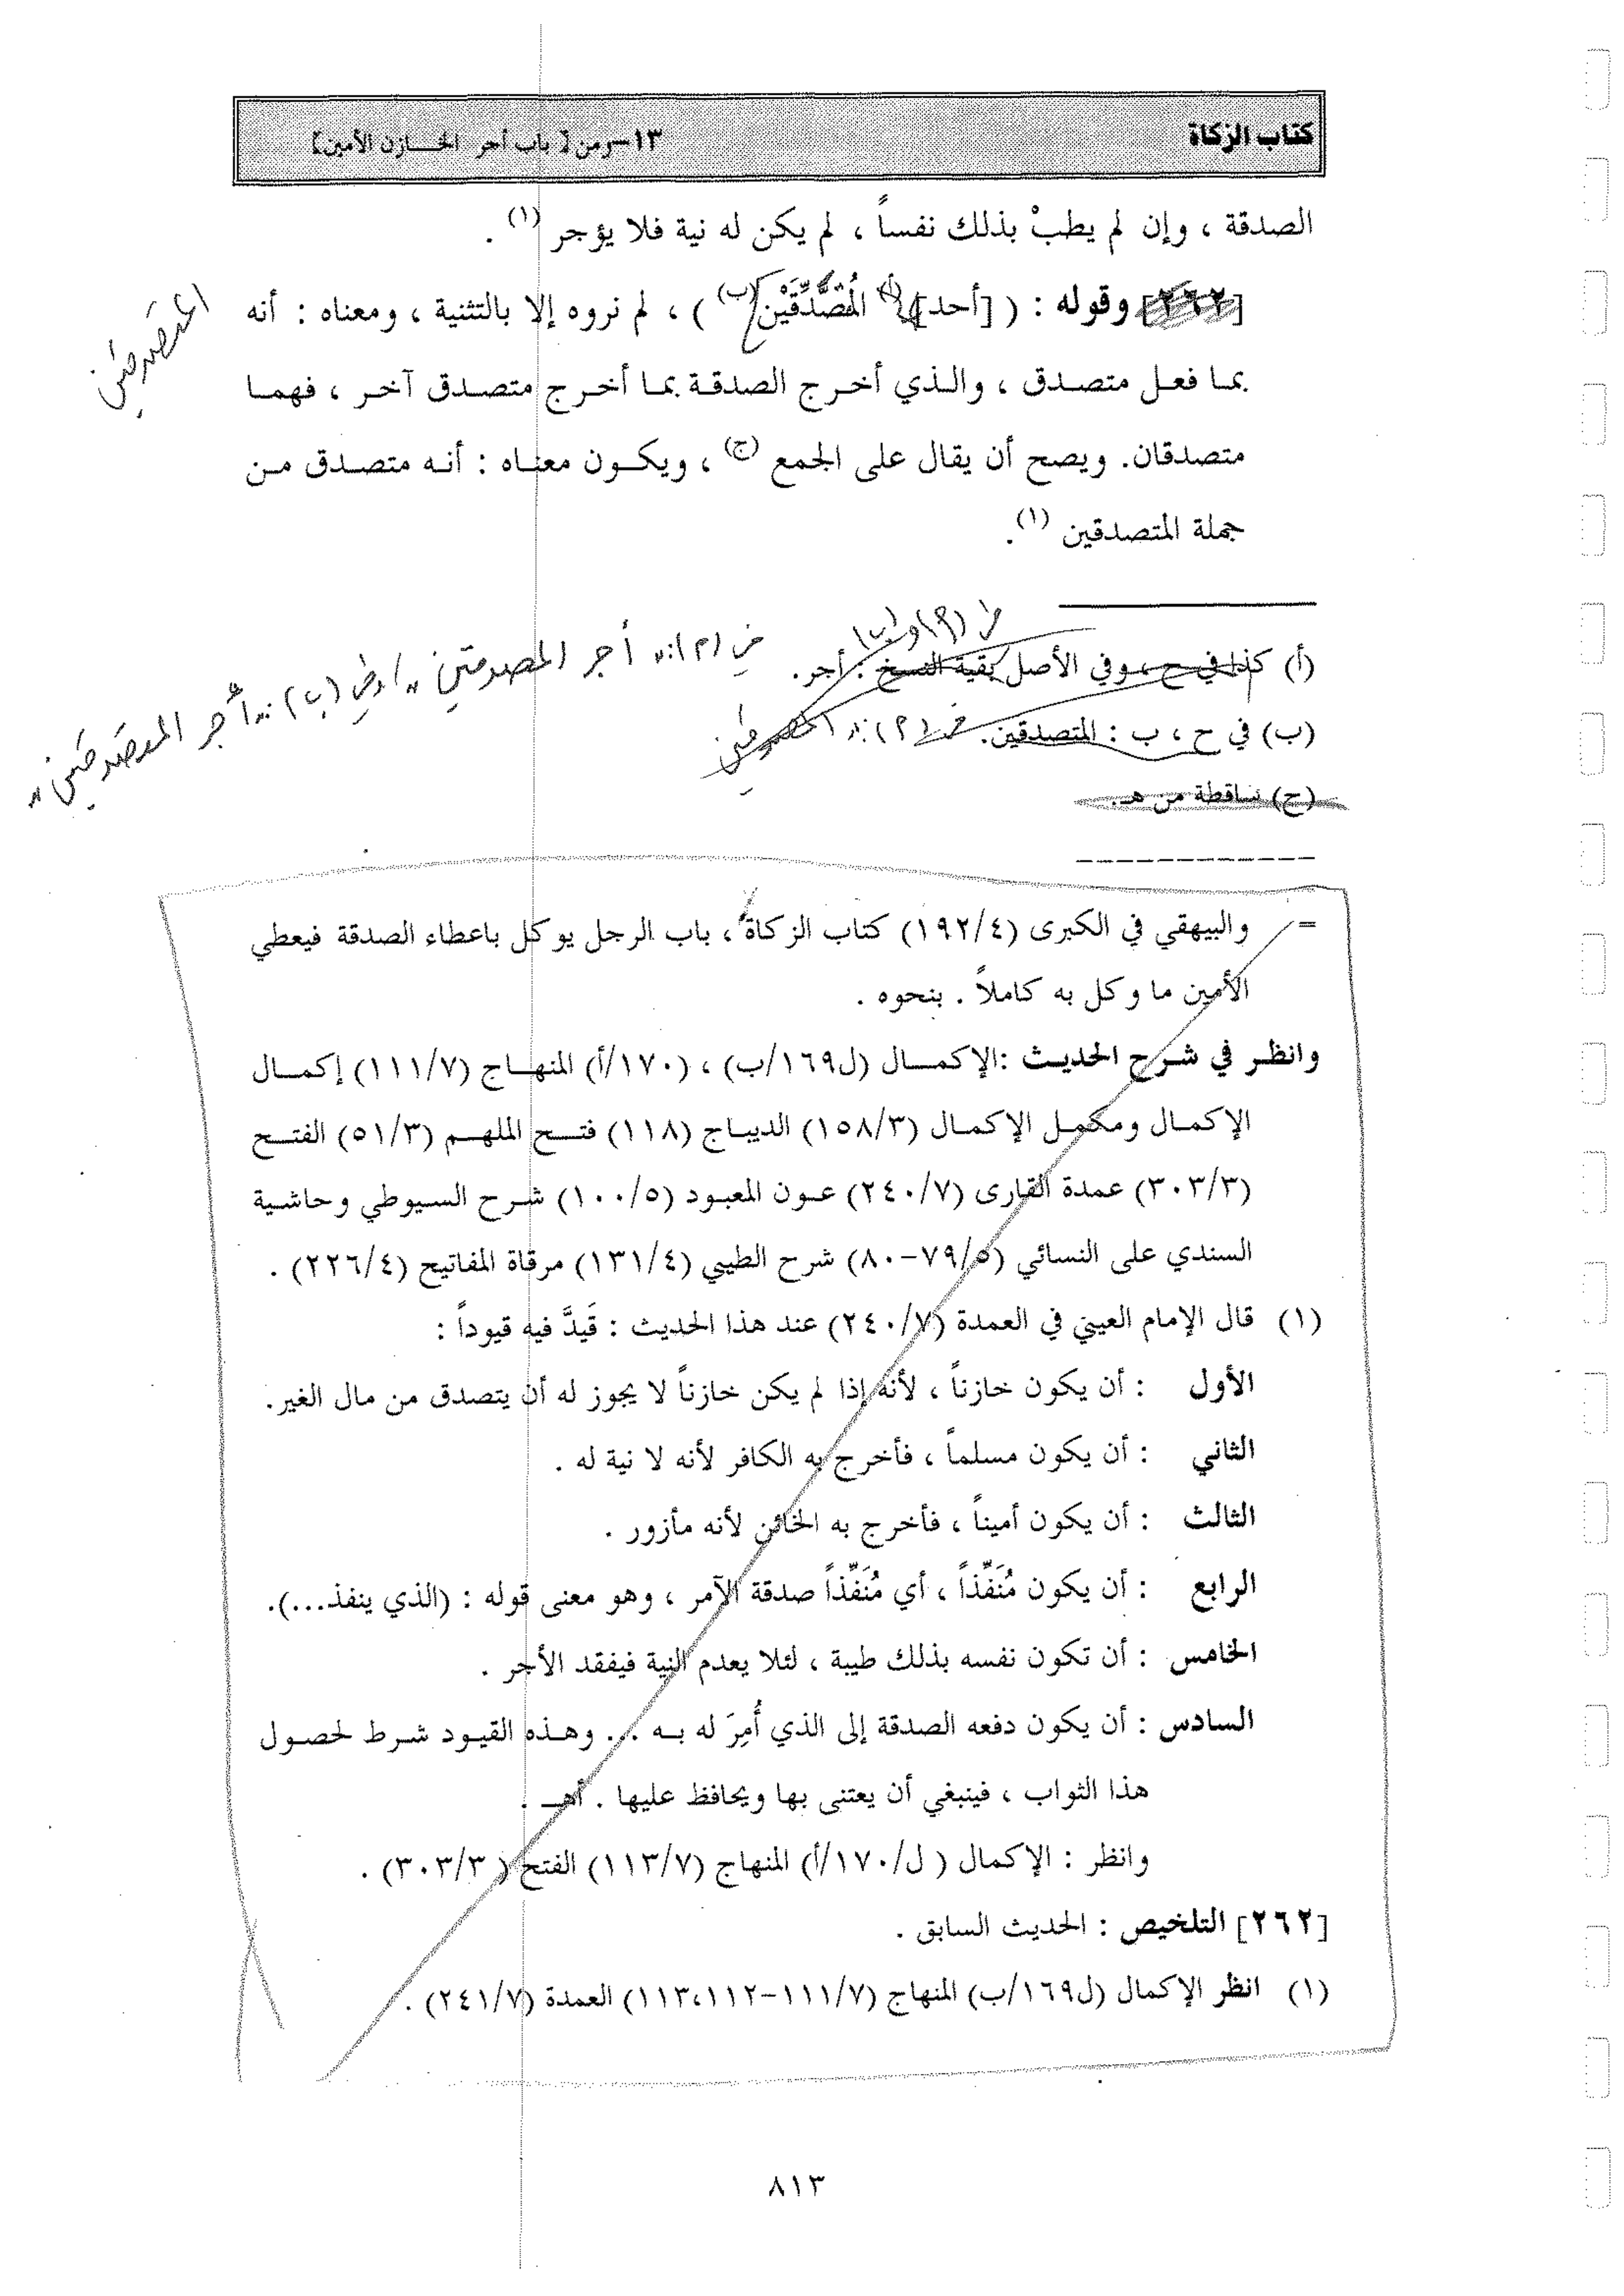 كتاب الزكاة ١٣-ومن [باب أجر الخازن الأمين]
الصدقة ، وإن لم يطبْ بذلك نفساً ، لم يكن له نية فلا يؤجر (١) .
[٢٦٢] وقوله : ( [أحد] (أ) المُتَصَدِّقَيْن (ب) ) ، لم نروه إلا بالتثنية ، ومعناه : أنه
بما فعل متصدق ، والذي أخرج الصدقة بما أخرج متصدق آخر ، فهما
متصدقان. ويصح أن يقال على الجمع (ج) ، ويكون معناه : أنه متصدق من
جملة المتصدقين (١).
(أ) كذا في ح ، وفي الأصل بقية النسخ : أجر.
(ب) في ح ، ب : المتصدقين.
(ج) ساقطة من هـ.
= والبيهقي في الكبرى (١٩٢/٤) كتاب الزكاة ، باب الرجل يوكل باعطاء الصدقة فيعطي
الأمين ما وكل به كاملاً . بنحوه .
وانظر في شرح الحديث :الإكمال (ل١٦٩/ب) ، (١٧٠/أ) المنهاج (١١١/٧) إكمال
الإكمال ومكمل الإكمال (١٥٨/٣) الديباج (١١٨) فتح الملهم (٥١/٣) الفتح
(٣٠٣/٣) عمدة القارى (٢٤٠/٧) عون المعبود (١٠٠/٥) شرح السيوطي وحاشية
السندي على النسائي (٧٩/٥-٨٠) شرح الطيبي (١٣١/٤) مرقاة المفاتيح (٢٢٦/٤) .
(١) قال الإمام العيني في العمدة (٢٤٠/٧) عند هذا الحديث : قَيدَّ فيه قيوداً :
الأول : أن يكون خازناً ، لأنه إذا لم يكن خازناً لا يجوز له أن يتصدق من مال الغير.
الثاني : أن يكون مسلماً ، فأخرج به الكافر لأنه لا نية له .
الثالث : أن يكون أميناً ، فأخرج به الخائن لأنه مأزور .
الرابع : أن يكون مُنَفِّذاً ، أي مُنَفِّذاً صدقة الآمر ، وهو معنى قوله : (الذي ينفذ...).
الخامس : أن تكون نفسه بذلك طيبة ، لئلا يعدم النية فيفقد الأجر .
السادس : أن يكون دفعه الصدقة إلى الذي أُمِرَ له به ... وهذه القيود شرط لحصول
هذا الثواب ، فينبغي أن يعتنى بها ويحافظ عليها . أهـ .
وانظر : الإكمال ( ل/١٧٠/أ) المنهاج (١١٣/٧) الفتح ( ٣٠٣/٣) .
[٢٦٢] التلخيص : الحديث السابق .
(١) انظر الإكمال (ل١٦٩/ب) المنهاج (١١١/٧-١١٣،١١٢) العمدة (٢٤١/٧) .
٨١٣